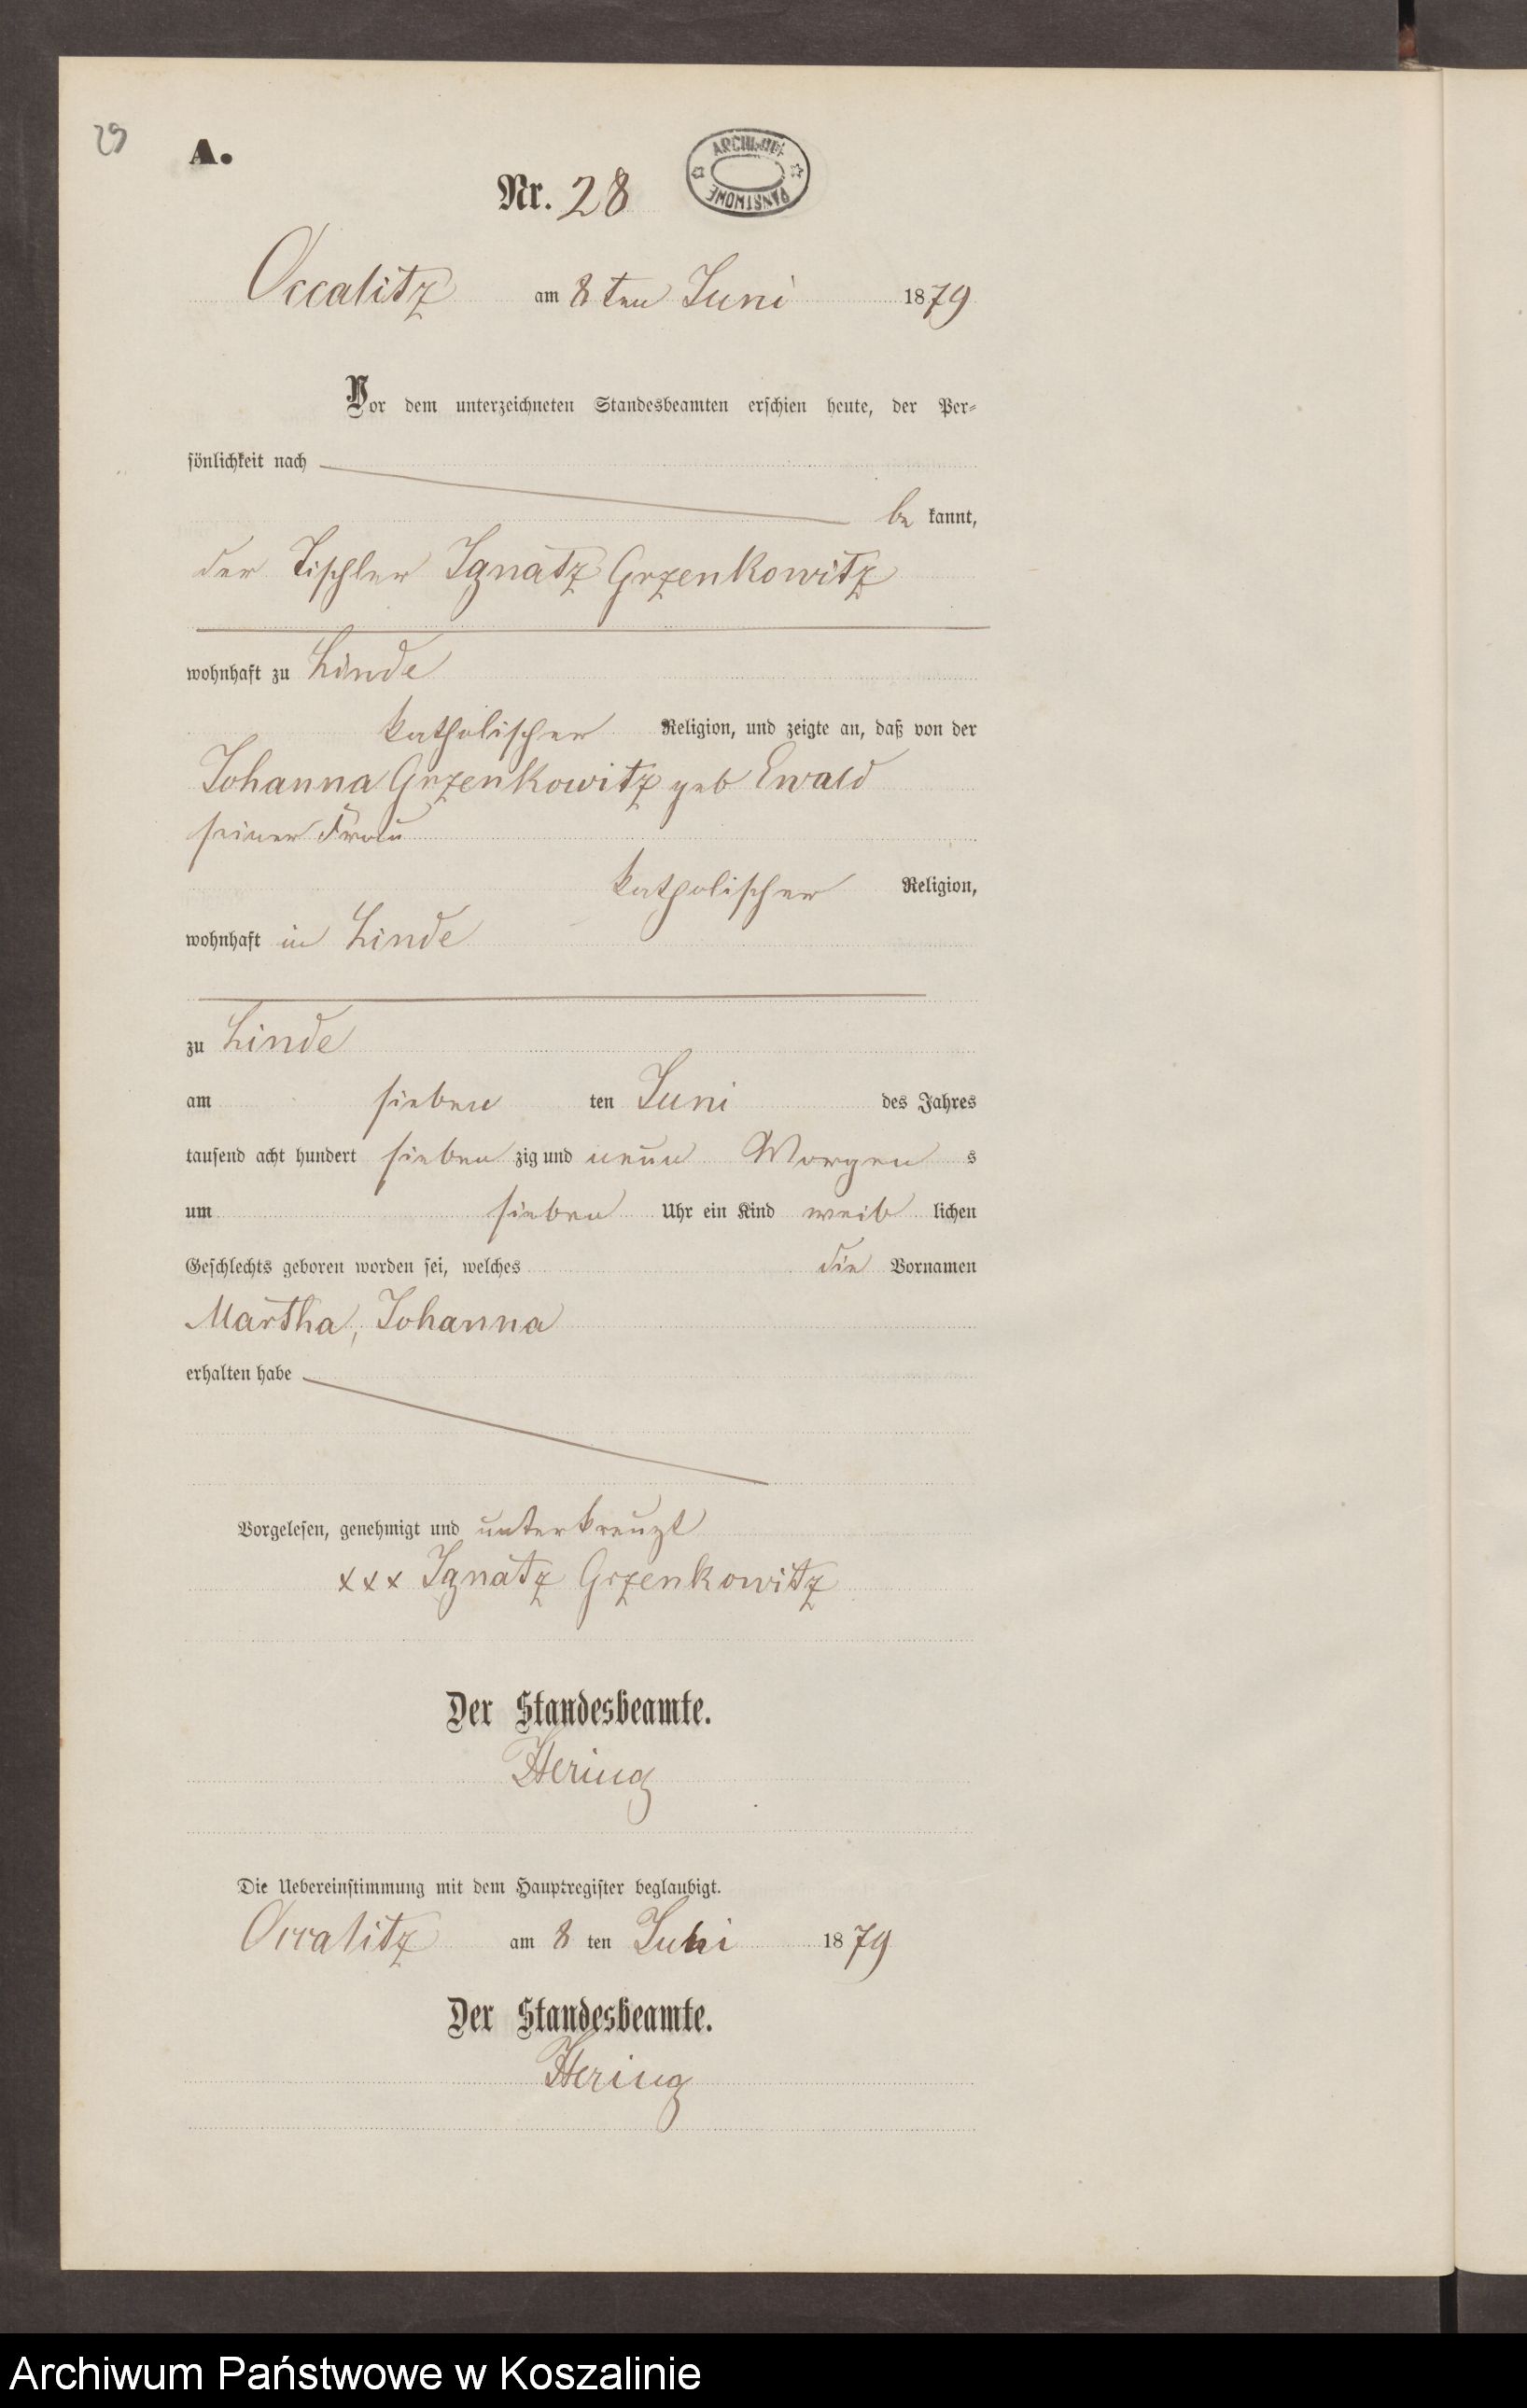 29
A.
Nr. 28
ARCHIWUM PAŃSTWOWE
Occalitz am 8 ten Juni 1879
Vor dem unterzeichneten Standesbeamten erschien heute, der Per-
sönlichkeit nach
be kannt,
der Tischler Ignatz Grzenkowitz
wohnhaft zu Linde
katholischer Religion, und zeigte an, daß von der
Johanna Grzenkowitz geb Ewald
seiner Frau
katholischer Religion,
wohnhaft in Linde
zu Linde
am sieben ten Juni des Jahres
tausend acht hundert sieben zig und neun Morgen s
um sieben Uhr ein Kind weib lichen
Geschlechts geboren worden sei, welches die Vornamen
Martha, Johanna
erhalten habe
Vorgelesen, genehmigt und unterkreuzt
xxx Ignatz Grzenkowitz
Der Standesbeamte.
Hering
Die Uebereinstimmung mit dem Hauptregister beglaubigt.
Occalitz am 8 ten Juni 1879
Der Standesbeamte.
Hering
Archiwum Państwowe w Koszalinie